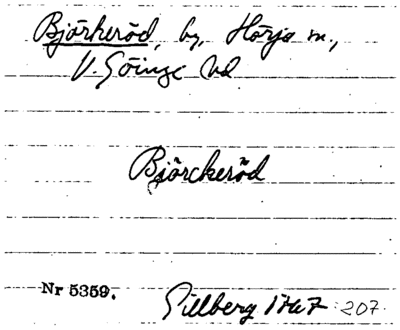 Björkeröd, by, Hörja sn.,
V. Göinge hd
Björckeröd
Nr 5359.
Gillberg 1767 207.